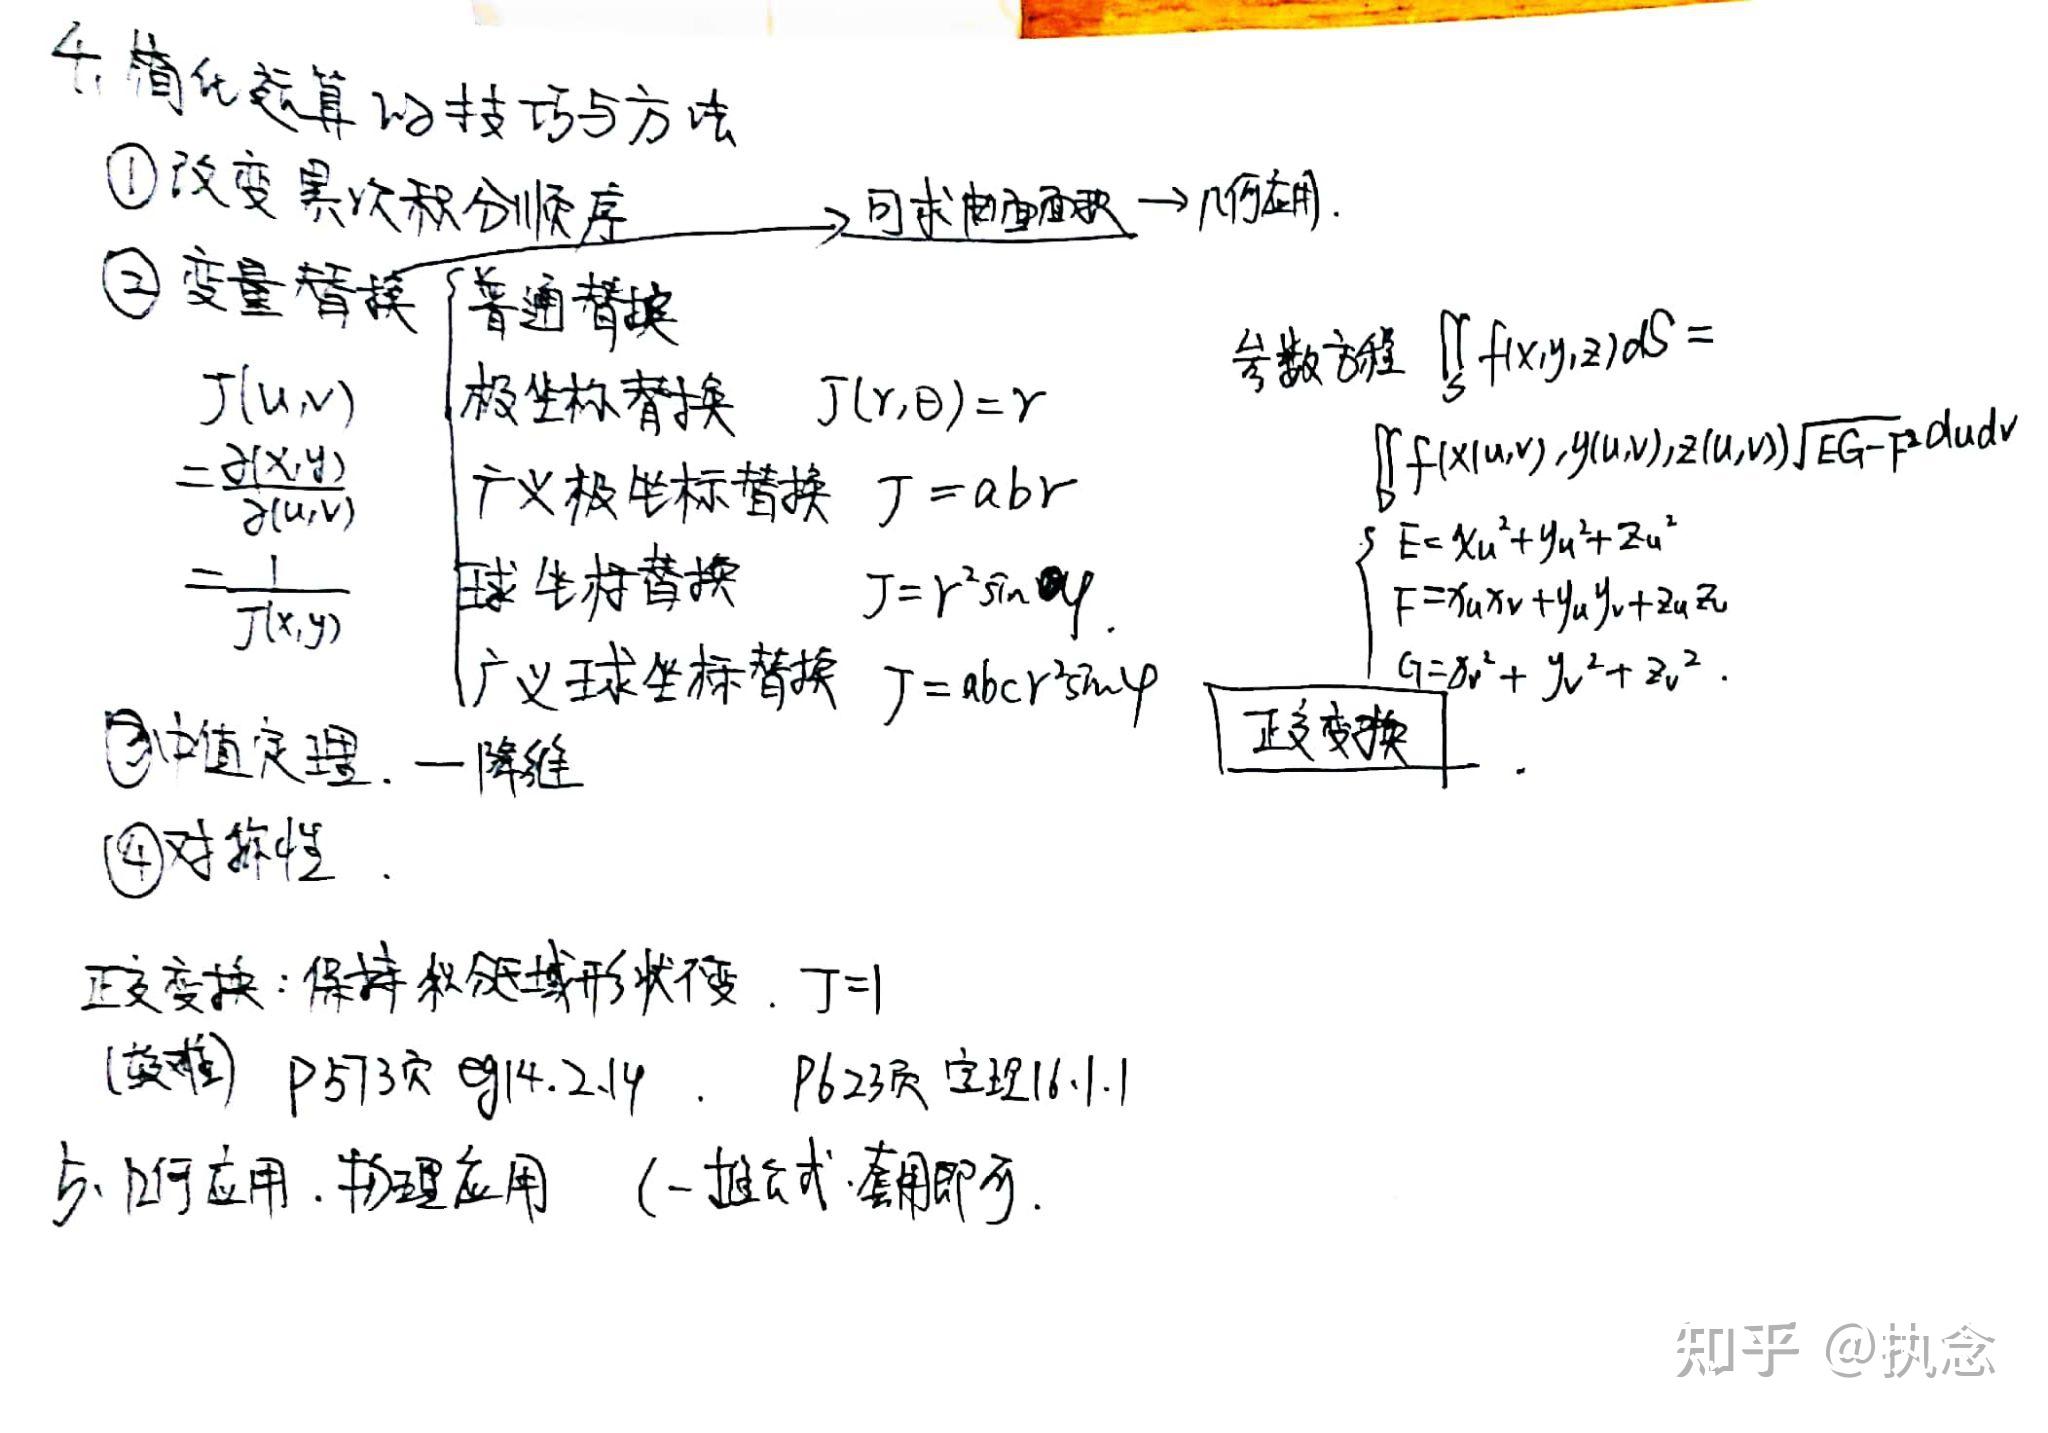 4. 简化运算的技巧与方法
① 改变累次积分顺序
→ 可求曲面面积 → 几何应用.
② 变量替换 { 普通替换
J(u,v) 极坐标替换 J(r,θ)=r
=∂(x,y)/∂(u,v) 广义极坐标替换 J=abr
=1/J(x,y) 球坐标替换 J=r²sinφ.
广义球坐标替换 J=abcr²sinφ
参数方程 ∬_S f(x,y,z)dS=
∬_D f(x(u,v),y(u,v),z(u,v))√(EG-F²)dudv
{ E=x_u²+y_u²+z_u²
F=x_u x_v+y_u y_v+z_u z_v
G=x_v²+y_v²+z_v².
正交变换
③ 中值定理. — 降维
④ 对称性.
正交变换:保持积分区域形状不变. J=1
(较难) P573页 eg14.2.14. P623页 定理16.1.1
5. 几何应用.物理应用 (一堆公式.套用即可.
知乎 @执念